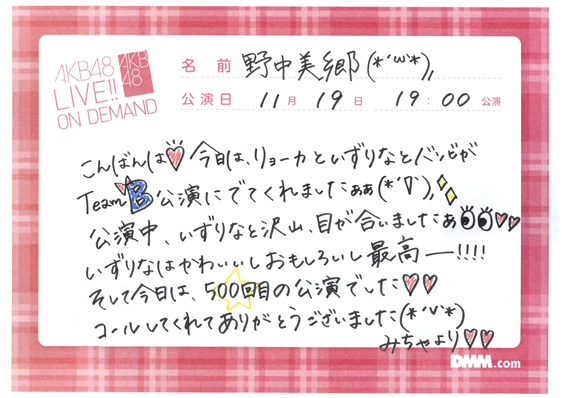 AKB48
LIVE!!
ON DEMAND
AKB
48
名前 野中美郷(*´ω`*),
公演日 11月19日 19:00公演
こんばんは♡今日は、リョーカといずりなとバンビが
Team B 公演にでてくれましたぁぁ(*´∇`),
公演中、いずりなと沢山、目が合いましたぁ
いずりなはかわいいしおもしろいし最高ー!!!!
そして今日は、500回目の公演でした♡♡
コールしてくれてありがとうございました(*´∇`*)
みちゃより♡♡
DMM.com